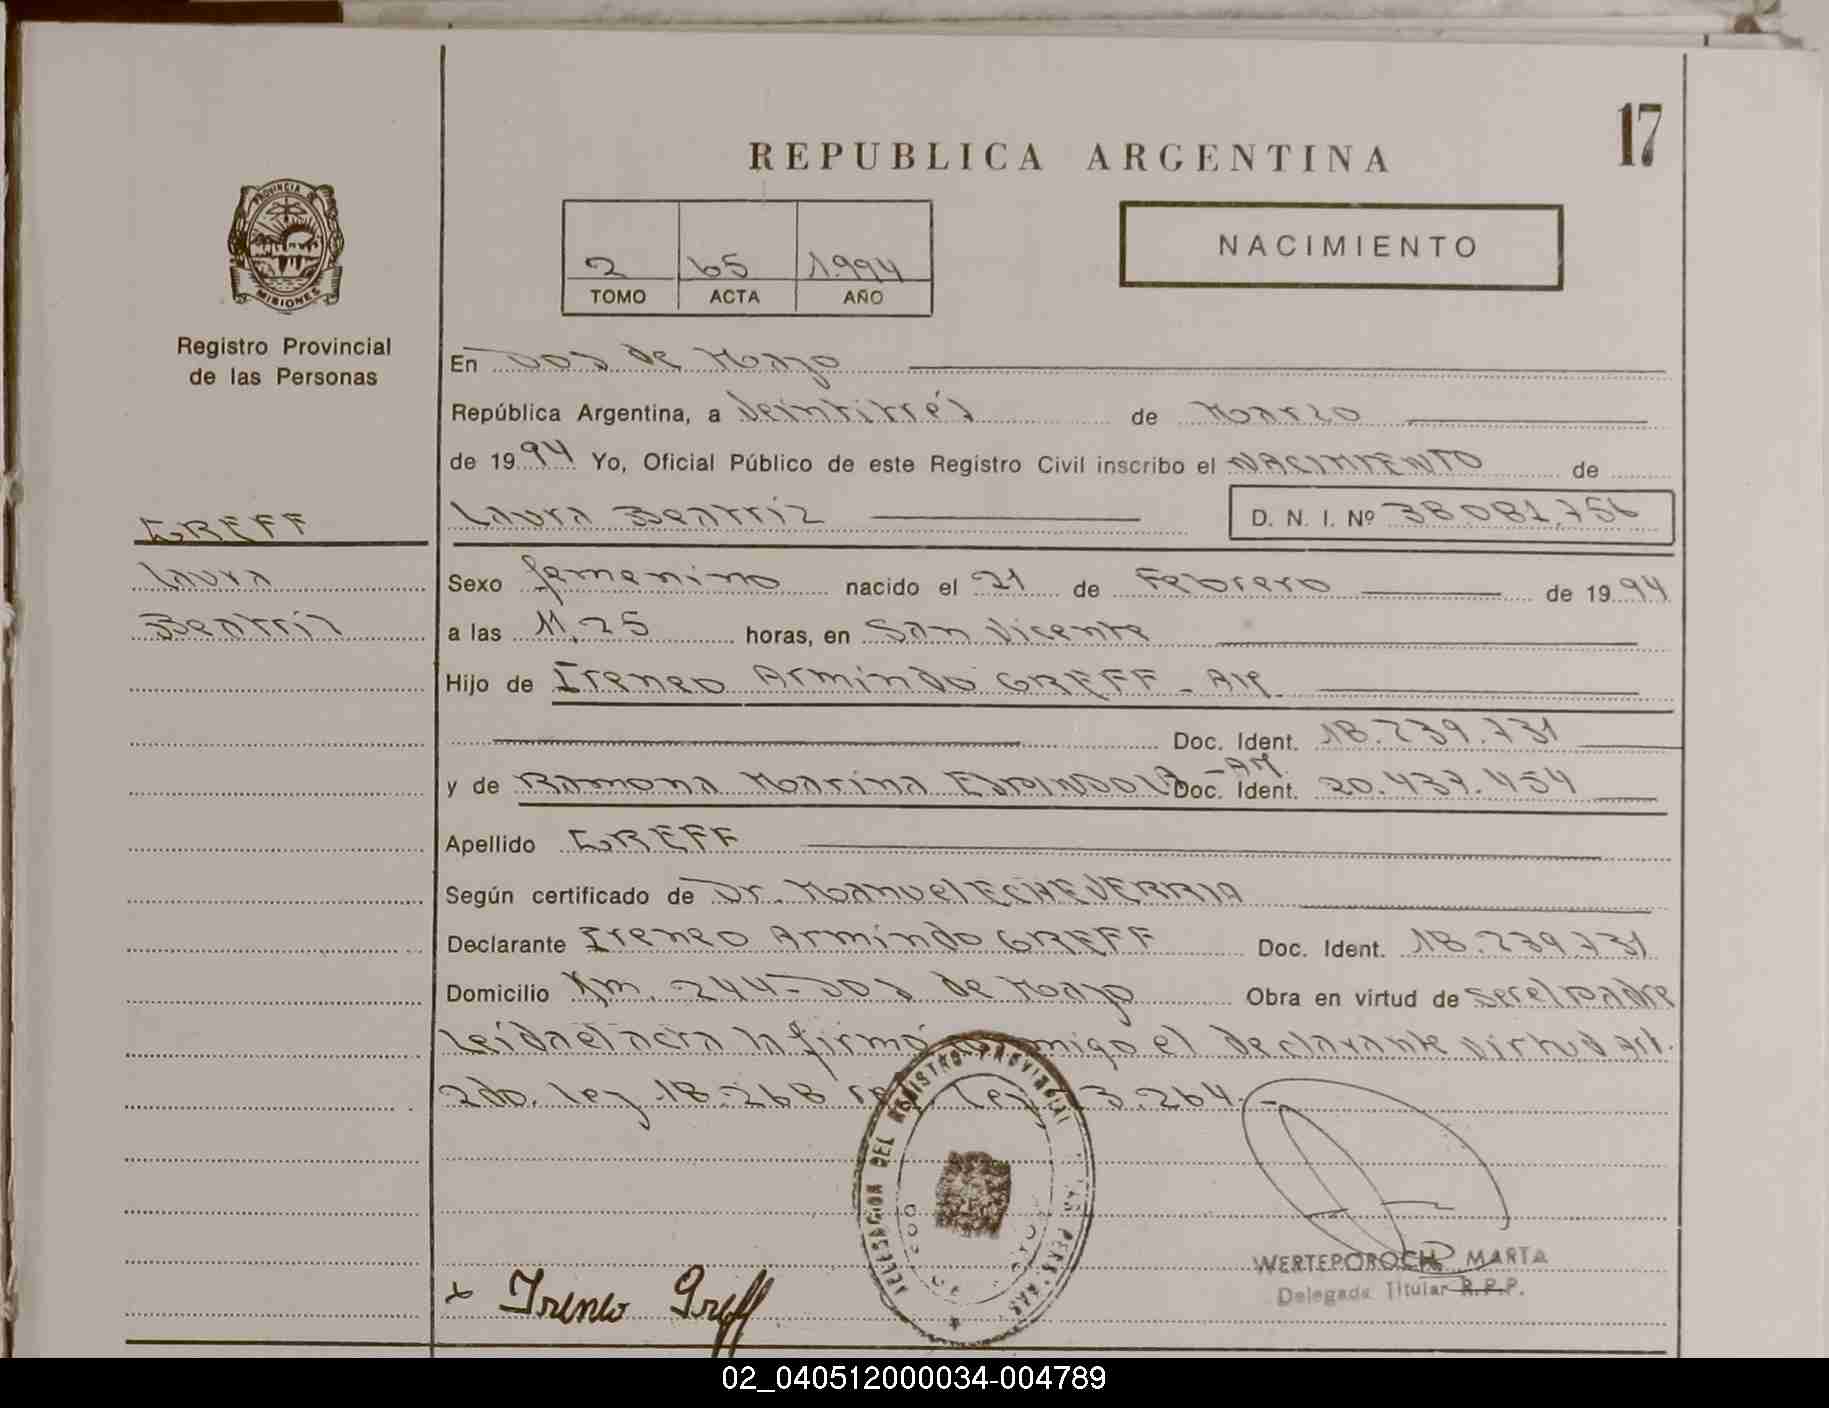 17
REPUBLICA ARGENTINA
PROVINCIA DE
MISIONES
Registro Provincial
de las Personas
2 65 1.994
TOMO ACTA AÑO
NACIMIENTO
En Dos de Mayo
República Argentina, a Veintitrés de Marzo
de 1994 Yo, Oficial Público de este Registro Civil inscribo el NACIMIENTO de
GREFF
Laura Beatriz D. N. I. Nº 38.081.756
Laura
Sexo femenino nacido el 21 de Febrero de 1994
Beatriz
a las 11.25 horas, en San Vicente
Hijo de Ireneo Armindo GREFF - Ar.
Doc. Ident. 18.239.731
y de Ramona Marina ESPINDOLA - Ar. Doc. Ident. 20.437.454
Apellido GREFF
Según certificado de Dr. Manuel ECHEVERRIA
Declarante Ireneo Armindo GREFF Doc. Ident. 18.239.731
Domicilio Km. 244-Dos de Mayo Obra en virtud de ser el Padre
Leida el acta la firmó conmigo el declarante virtud Art.
2do. ley 18.268 ley 3.264.-
DELEGACION DEL REGISTRO PROVINCIAL DE LAS PERSONAS
WERTEPOROCH MARTA
Delegada Titular R.P.P.
x Ireneo Greff
02_040512000034-004789